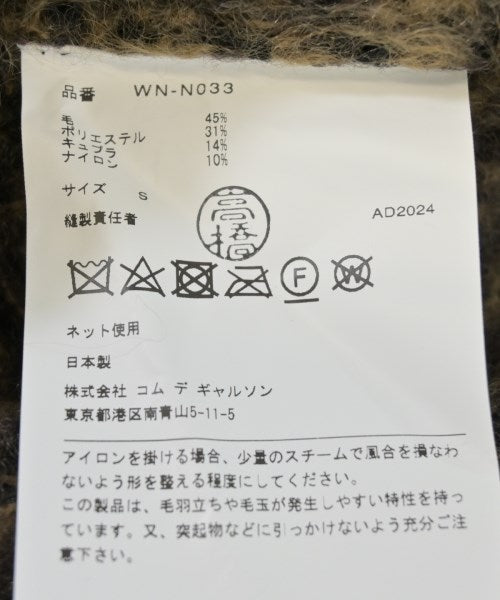 品番 WN-N033
毛 45%
ポリエステル 31%
キュプラ 14%
ナイロン 10%
サイズ S
縫製責任者 高橋 AD2024
F W
ネット使用
日本製
株式会社 コム デ ギャルソン
東京都港区南青山5-11-5
アイロンを掛ける場合、少量のスチームで風合を損なわ
ないよう形を整える程度にしてください。
この製品は、毛羽立ちや毛玉が発生しやすい特性を持っ
ています。又、突起物などに引っかけないよう充分ご注
意下さい。